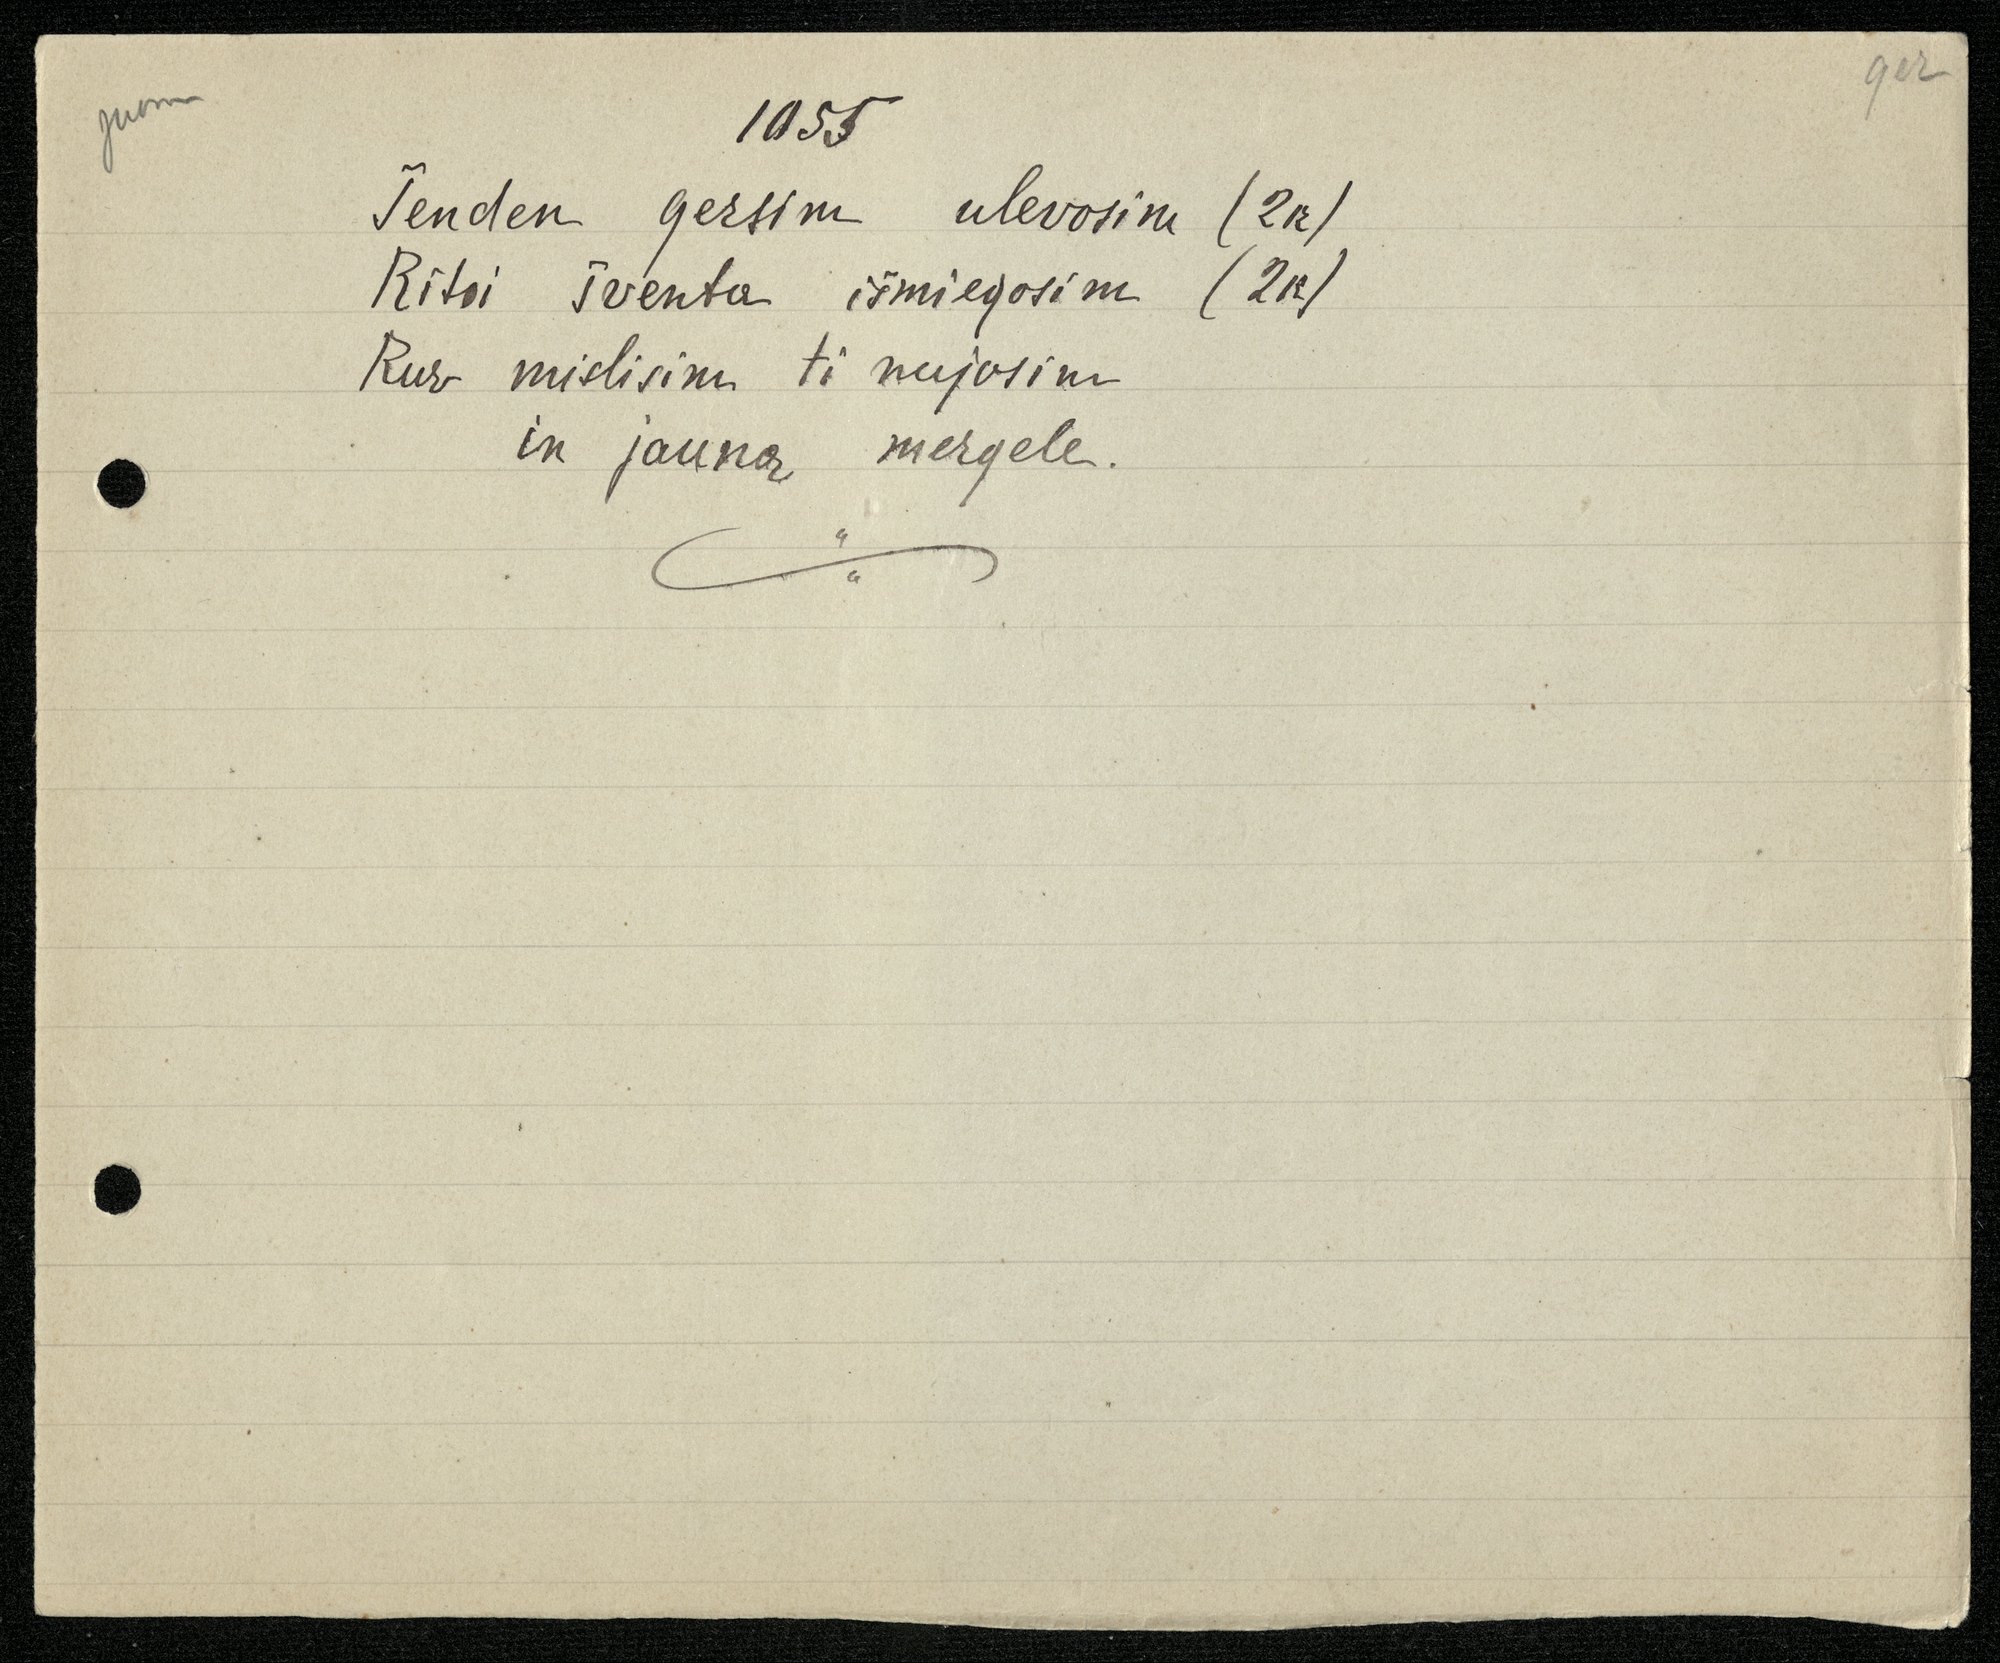 ger
1055
Šenden gersim ulevosim (2k)
Ritoi šventa išmiegosim (2k)
Kur mislisim ti nujosim
in jauną mergele.